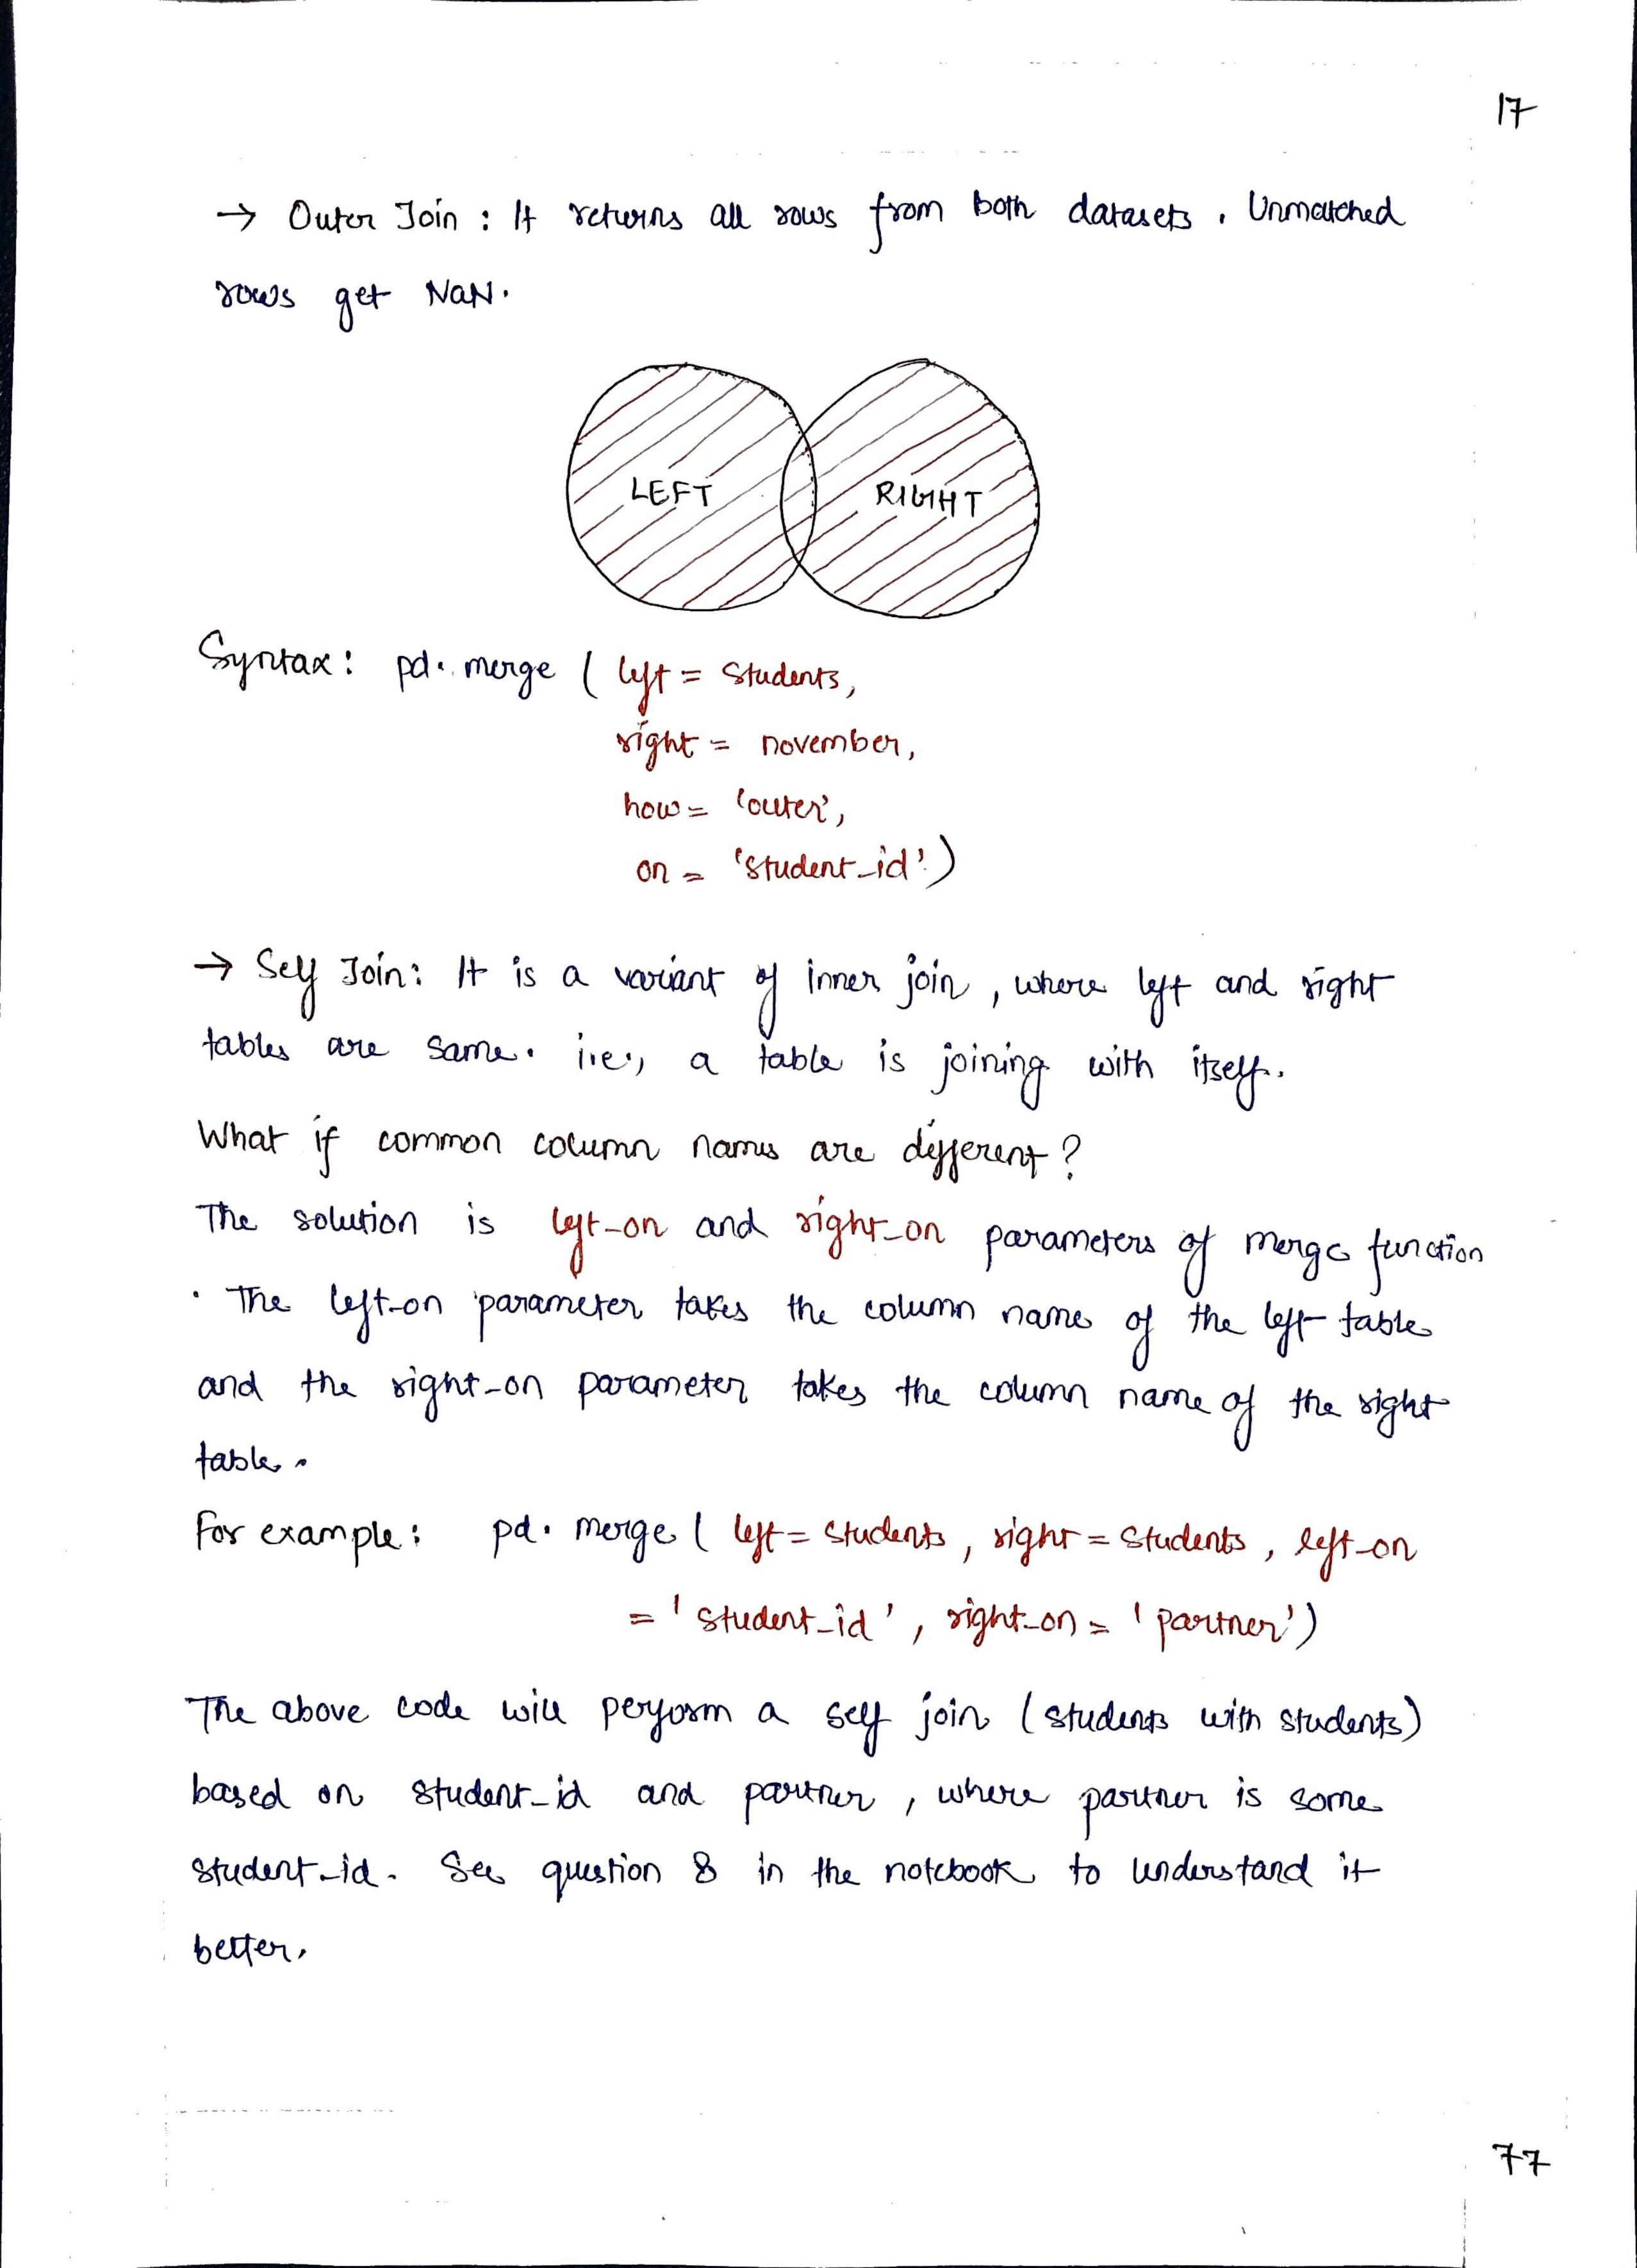 17
→ Outer Join : It returns all rows from both datasets . Unmatched
rows get NaN.
LEFT
RIGHT
Syntax : pd. merge ( left = students,
right = november,
how = 'outer',
on = 'student_id')
→ Self Join: It is a variant of inner join , where left and right
tables are same. i.e., a table is joining with itself.
What if common column names are different ?
The solution is left_on and right_on parameters of merge function
. The left_on parameter takes the column name of the left table
and the right_on parameter takes the column name of the right
table.
For example : pd. merge ( left = students, right = students , left_on
= 'student_id' , right_on = 'partner')
The above code will perform a self join (students with students)
based on student_id and partner , where partner is some
student_id. See question 8 in the notebook to understand it
better.
77